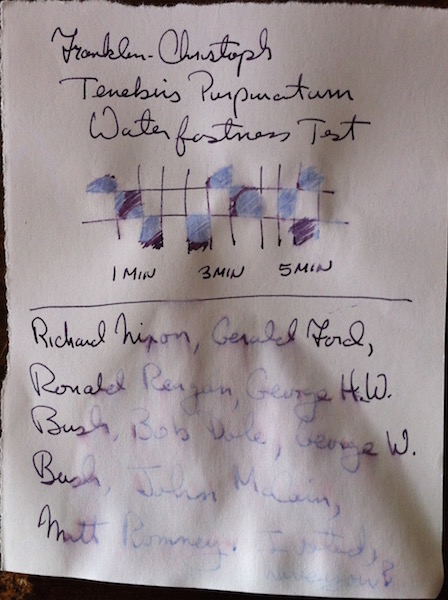 Franklin-Christoph
Tenebris Purpuratum
Waterfastness Test
1 MIN 3 MIN 5 MIN
Richard Nixon, Gerald Ford,
Ronald Reagan, George H.W.
Bush, Bob Dole, George W.
Bush, John McCain,
Mitt Romney. I voted,
have you?